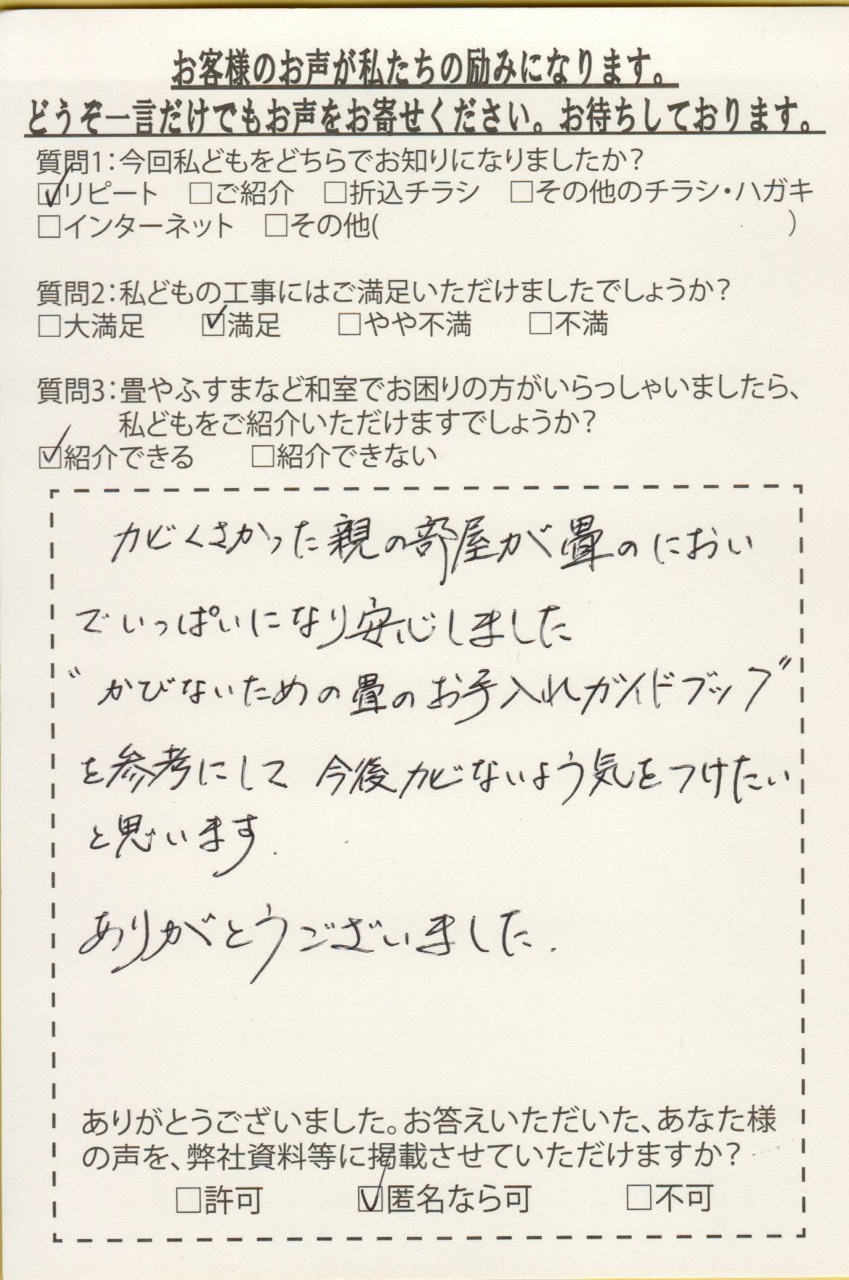 お客様のお声が私たちの励みになります。
どうぞ一言だけでもお声をお寄せください。お待ちしております。
質問1：今回私どもをどちらでお知りになりましたか？
☑リピート　□ご紹介　□折込チラシ　□その他のチラシ・ハガキ
□インターネット　□その他(　　　　　　　　　　)
質問2：私どもの工事にはご満足いただけましたでしょうか？
□大満足　☑満足　□やや不満　□不満
質問3：畳やふすまなど和室でお困りの方がいらっしゃいましたら、
私どもをご紹介いただけますでしょうか？
☑紹介できる　□紹介できない
カビくさかった親の部屋が畳のにおい
でいっぱいになり安心しました
"かびないための畳のお手入れガイドブップ"
を参考にして 今後カビないよう気をつけたい
と思います.
ありがとうございました.
ありがとうございました。お答えいただいた、あなた様
の声を、弊社資料等に掲載させていただけますか？
□許可　☑匿名なら可　□不可